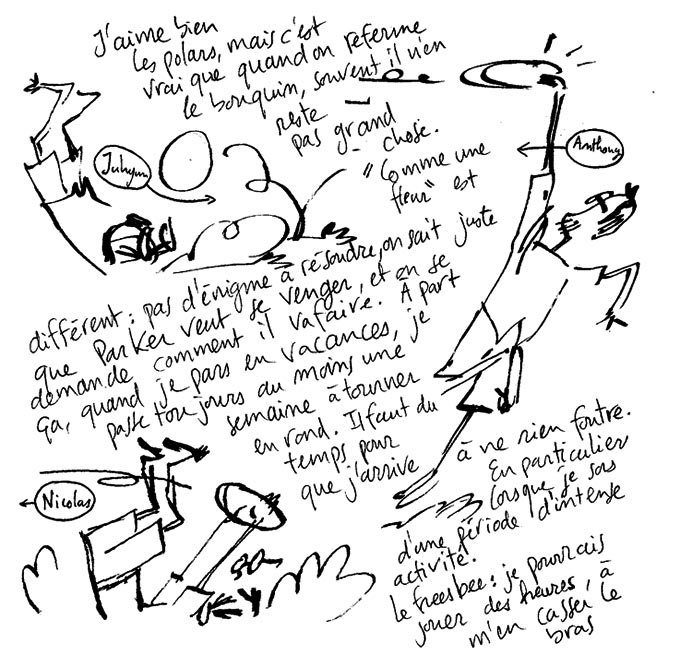 J'aime bien
les polars, mais c'est
vrai que quand on referme
le bouquin, souvent il n'en
reste
pas grand
chose.
"Comme une
fleur" est
différent : pas d'énigme à résoudre, on sait juste
que Parker veut se venger, et on se
demande comment il va faire. A part
ça, quand je pars en vacances, je
passe toujours au moins une
semaine à tourner
en rond. Il faut du
temps pour
que j'arrive
à ne rien foutre.
En particulier
lorsque je sors
d'une période d'intense
activité.
Le freesbee : je pourrais
jouer des heures, à
m'en casser le
bras
Juhyun
Anthony
Nicolas